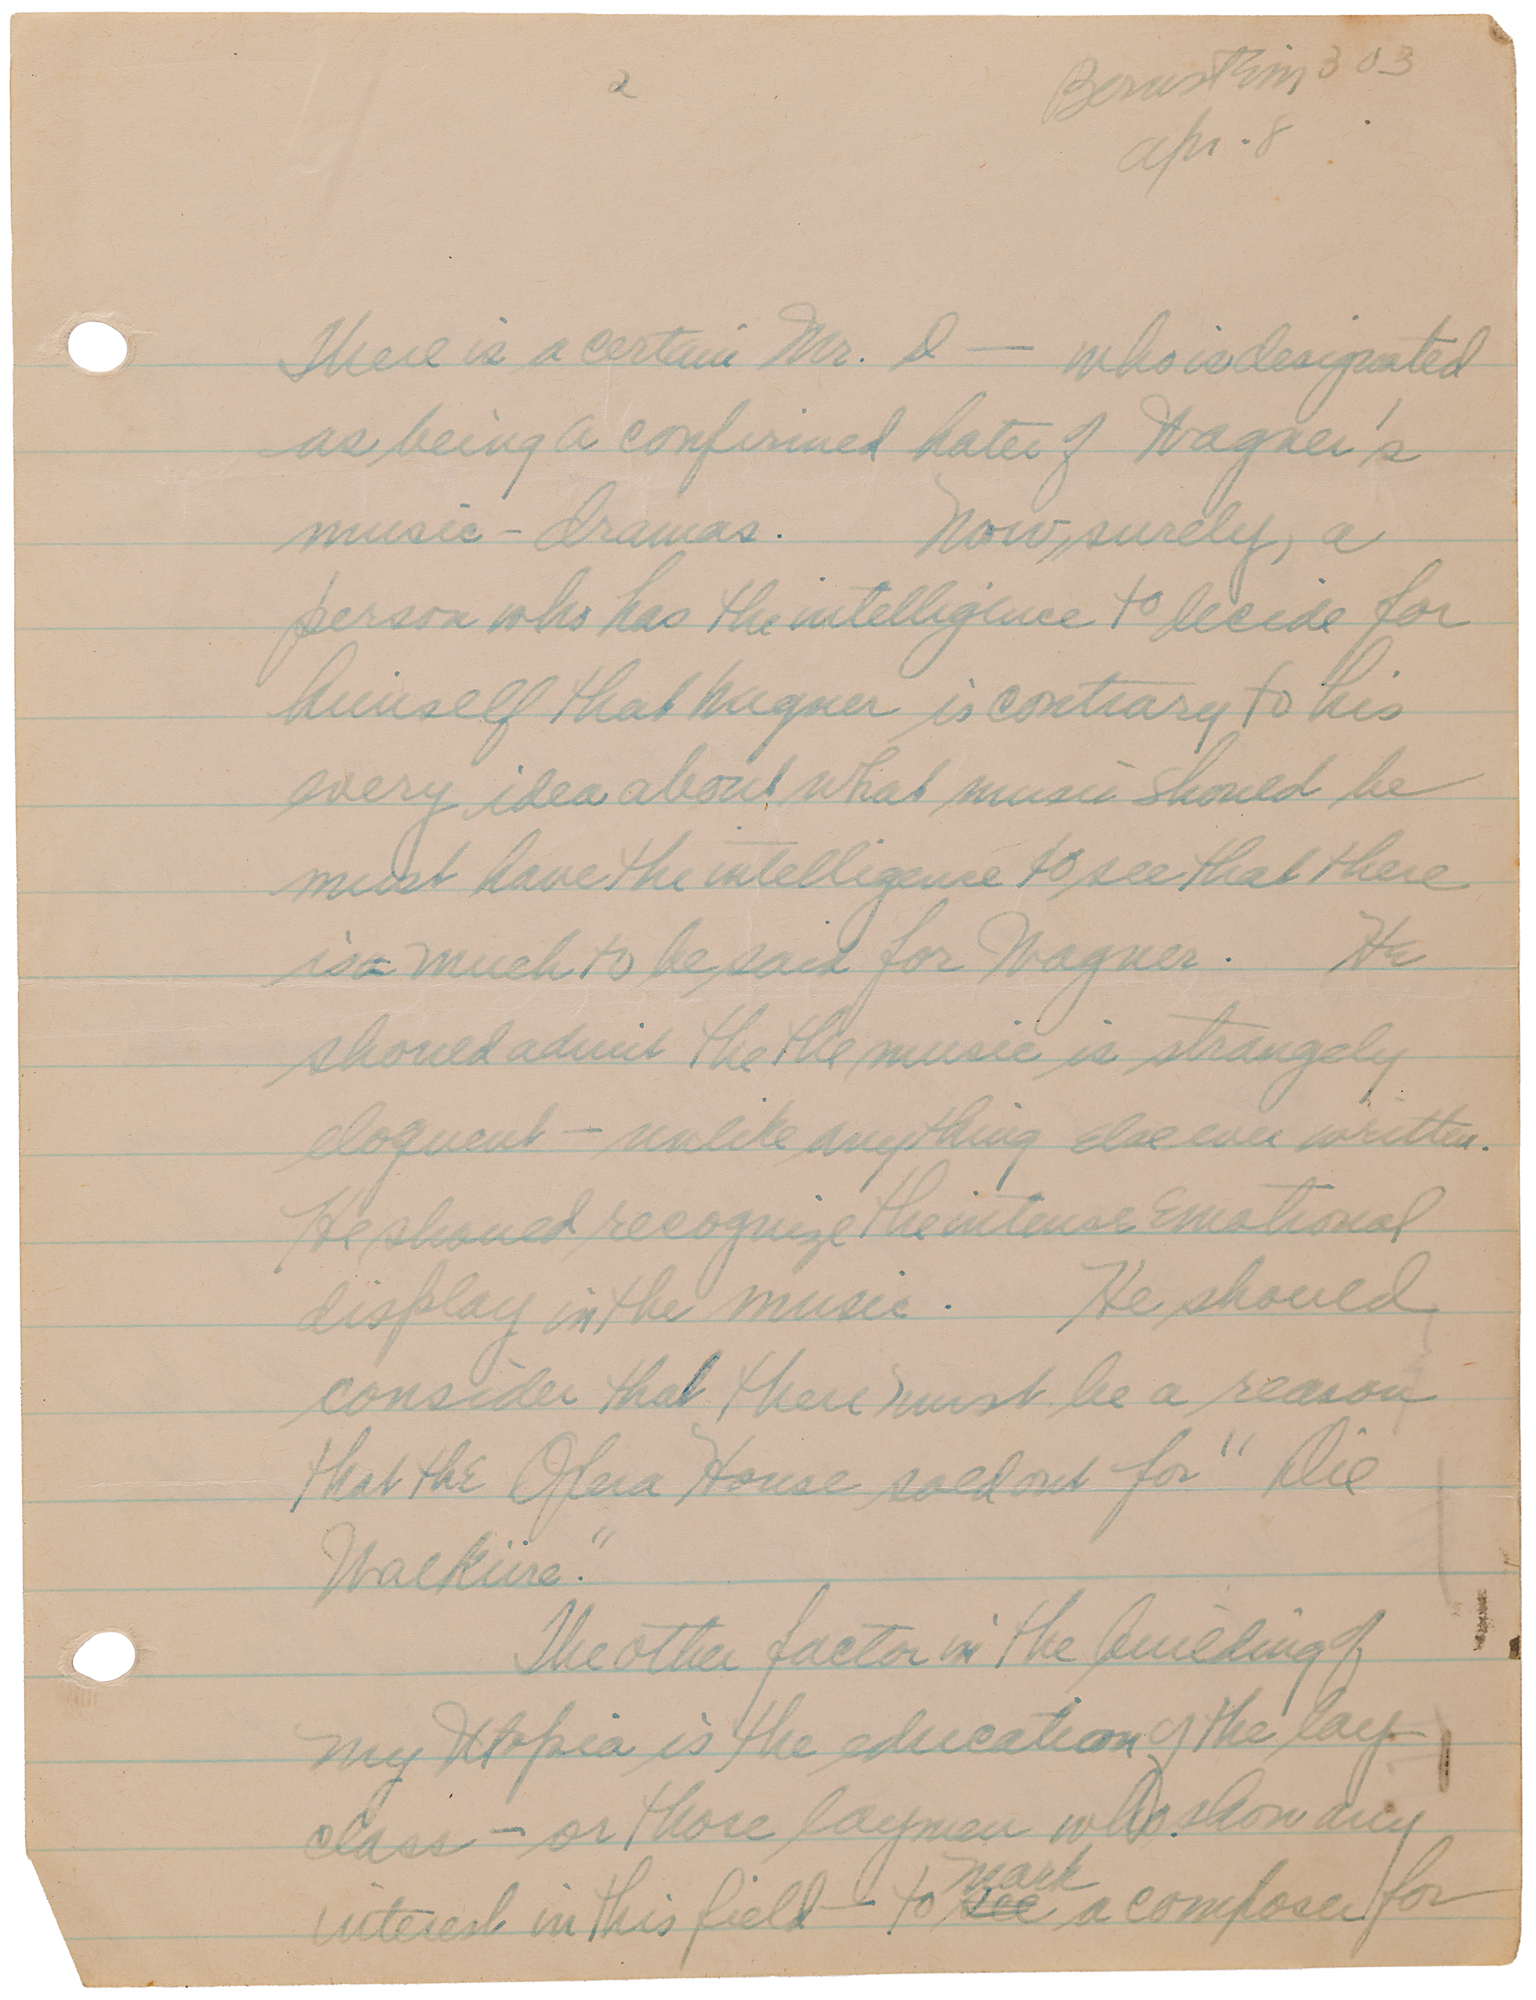 2
Bernstein 303
Apr. 8
There is a certain Mr. D — who is designated
as being a confirmed hater of Wagner's
music-dramas. Now, surely, a
person who has the intelligence to decide for
himself that Wagner is contrary to his
every idea about what music should be
must have the intelligence to see that there
is much to be said for Wagner. He
should admit the the music is strangely
eloquent — unlike anything else ever written.
He should recognize the intense emotional
display in the music. He should
consider that there must be a reason
that the Opera House sold out for "Die
Walküre."
The other factor in the building of
my Utopia is the education of the lay
class — or those laymen who show any
mark
interest in this field — to see a composer for